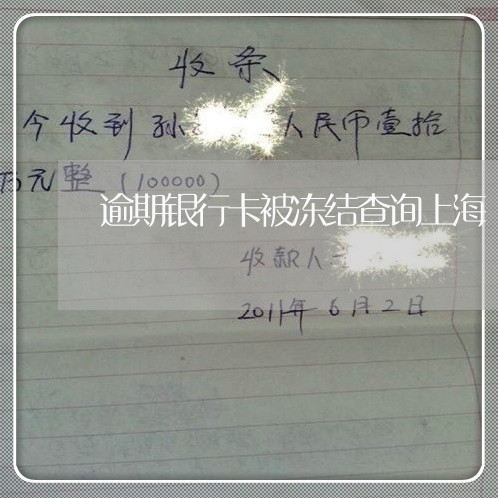 收条
今收到孙 人民币壹拾
万元整(100000)
逾期银行卡被冻结查询上海
收款人
2011年6月2日